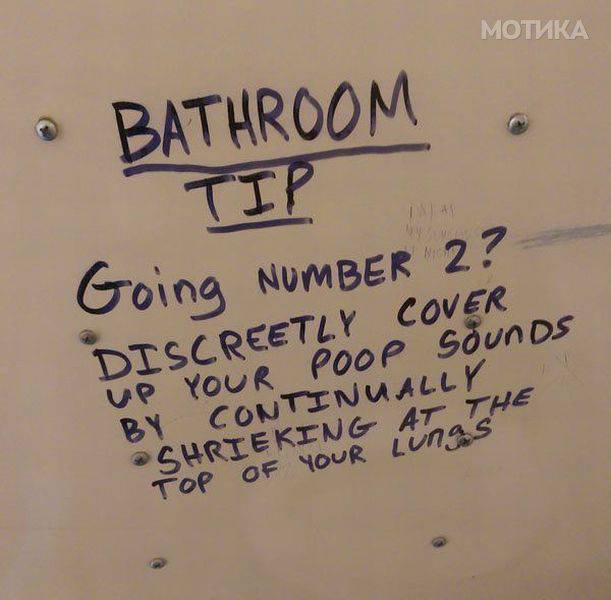 МОТИКА
BATHROOM
TIP
Going NUMBER 2?
DISCREETLY COVER
UP YOUR POOP SOUNDS
BY CONTINUALLY
SHRIEKING AT THE
TOP OF YOUR LUNGS